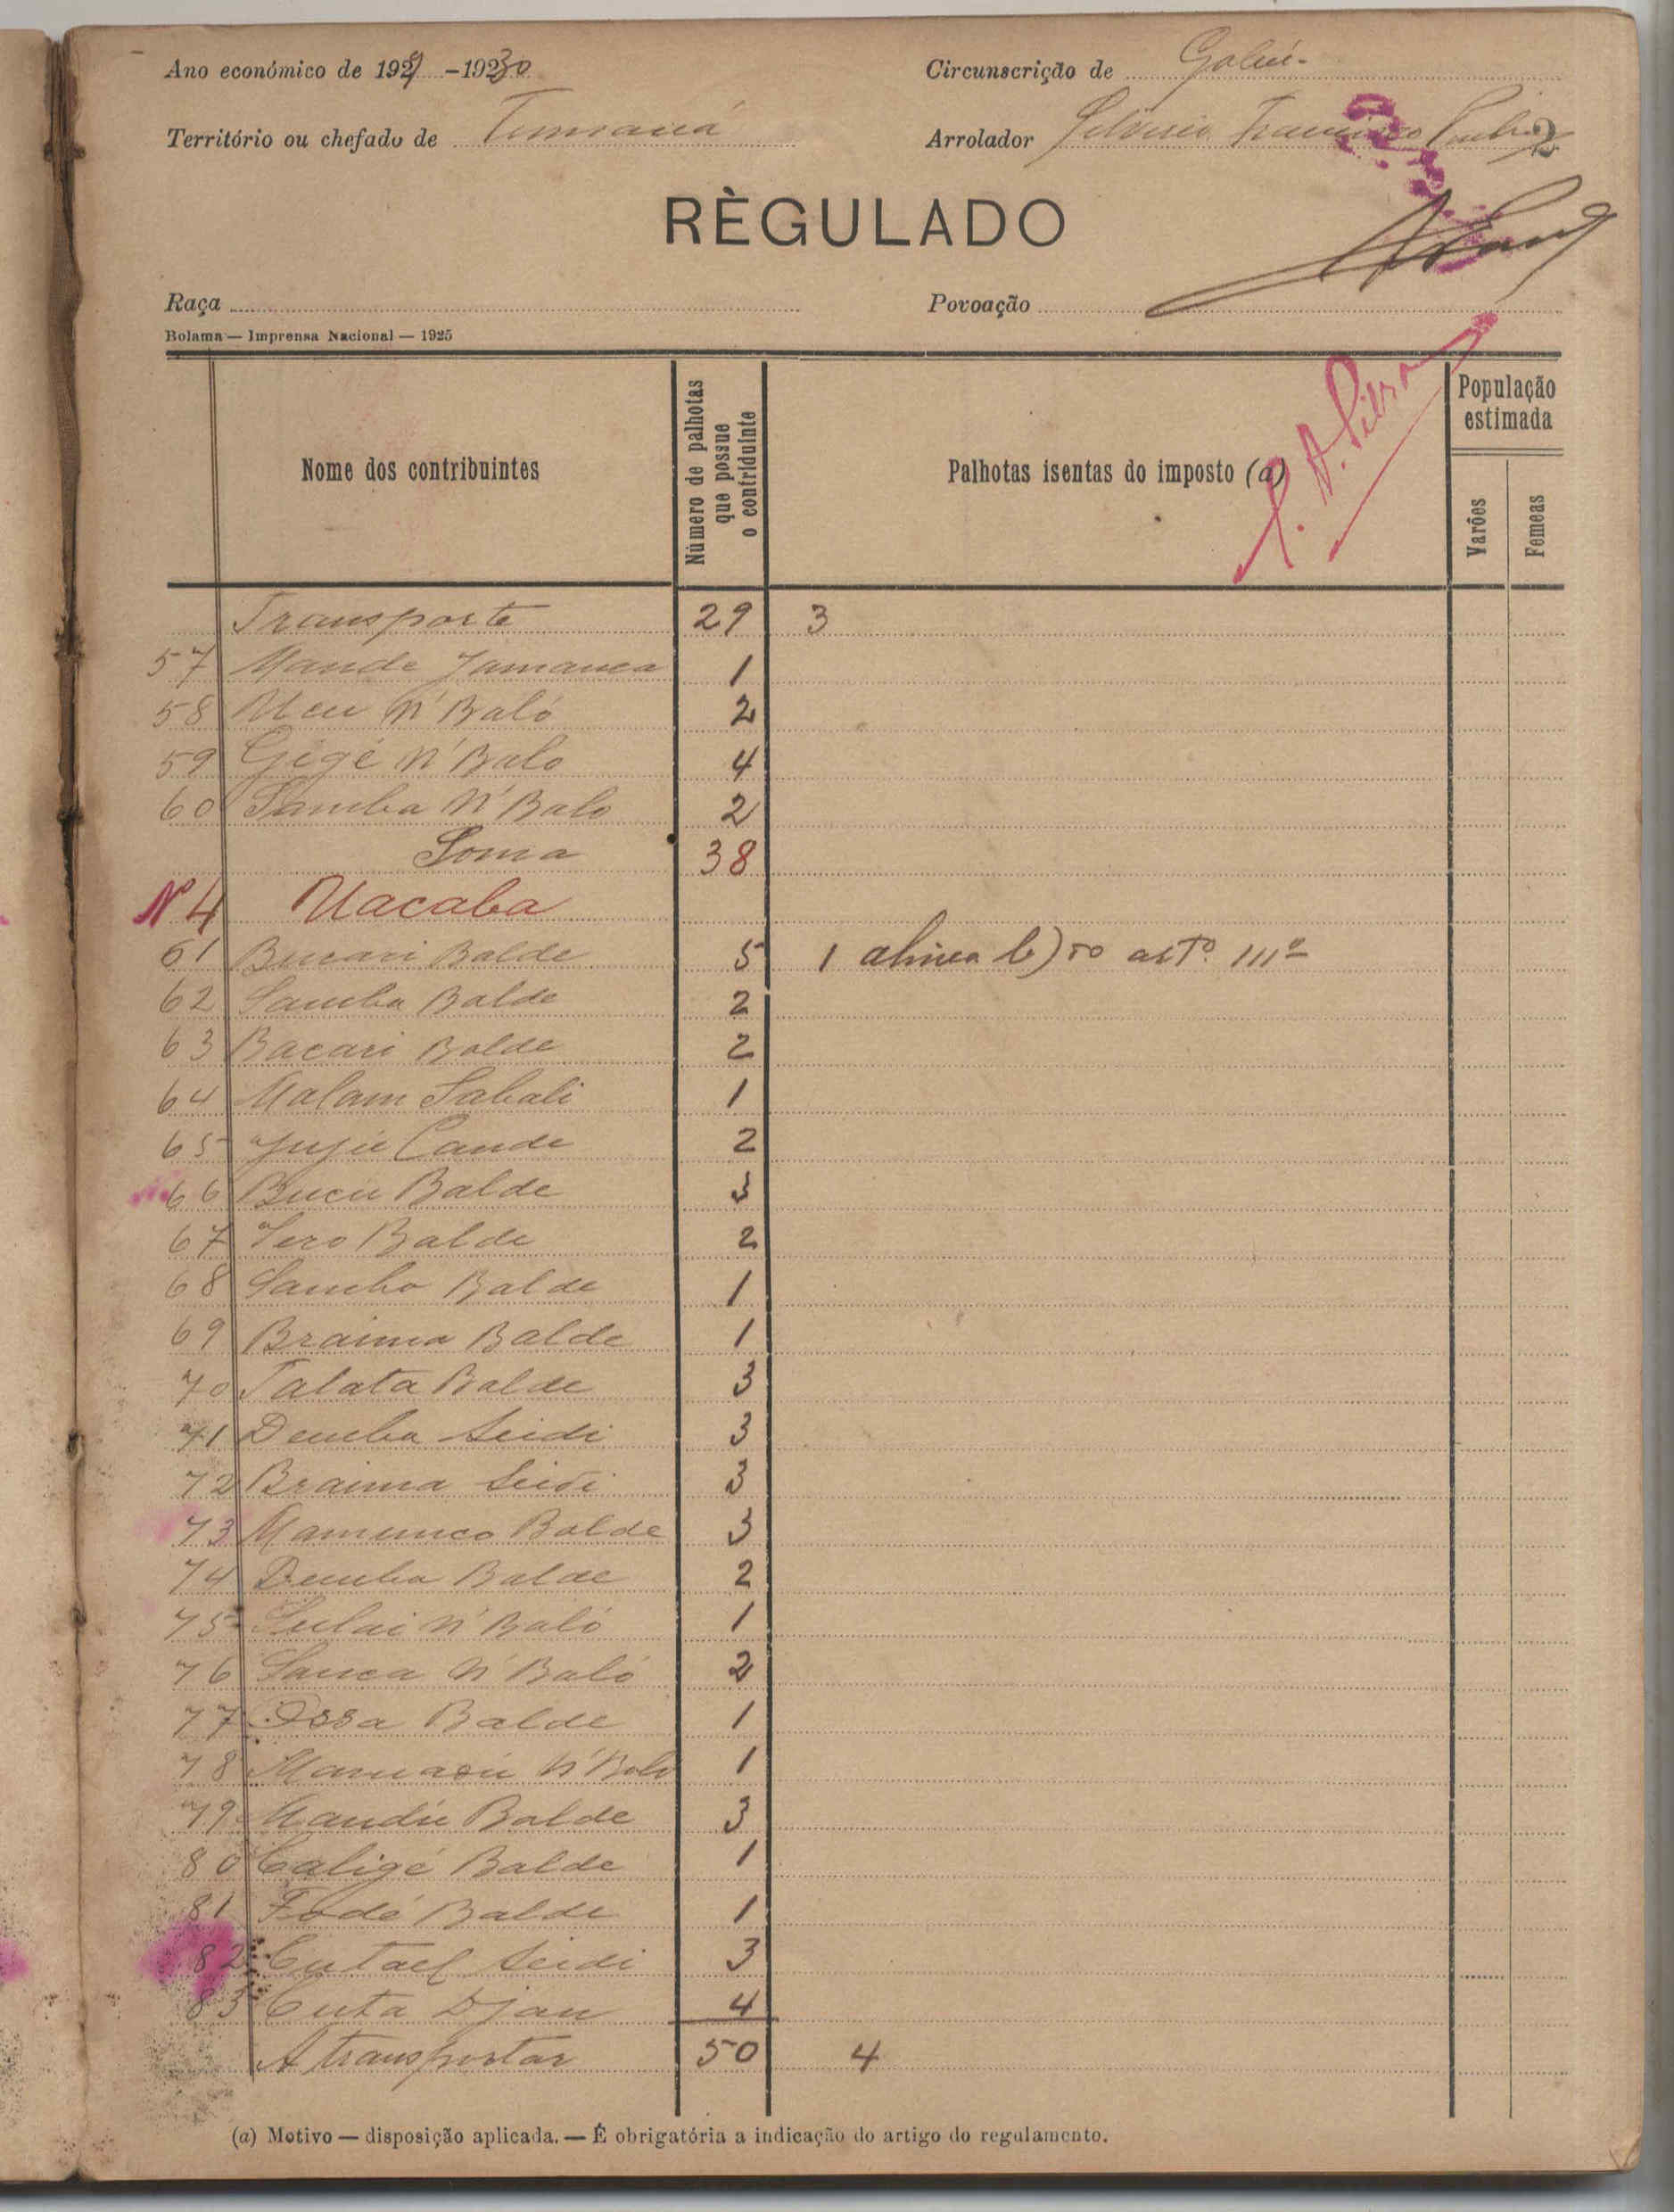 Ano económico de 1929 -1930
Circunscrição de Gabú-
Território ou chefado de Tumaná
Arrolador Francisco
2
RÈGULADO
Raça
Povoação
Bolama — Imprensa Nacional — 1925
Nome dos contribuintes
Número de palhotas que possue o contriduinte
Palhotas isentas do imposto (a)
População estimada
Varões
Femeas
Transporte 29 3
57 Mande Jamanca 1
58 N'Baló 2
59 Gigé N'Balo 4
60 Samba N'Balo 2
Soma 38
Nº 4 Uacaba
61 Bucari Balde 5 1 alinea b) do artº. 111º
62 Samba Balde 2
63 Bacari Balde 2
64 Malam Sabali 1
65 Cande 2
66 Bucu Balde 3
67 Sero Balde 2
68 Sambo Balde 1
69 Braima Balde 1
70 Talata Balde 3
71 Demba Seidi 3
72 Braima Seidi 3
73 Mamunco Balde 3
74 Demba Balde 2
75 N'Baló 1
76 Sanca N'Baló 2
77 Ossa Balde 1
78 Mamadú N'Balo 1
79 Mandiu Balde 3
80 Caligé Balde 1
81 Fodé Balde 1
82 Seidi 3
83 Cuta Djau 4
A transportar 50 4
(a) Motivo — disposição aplicada. — É obrigatória a indicação do artigo do regulamento.